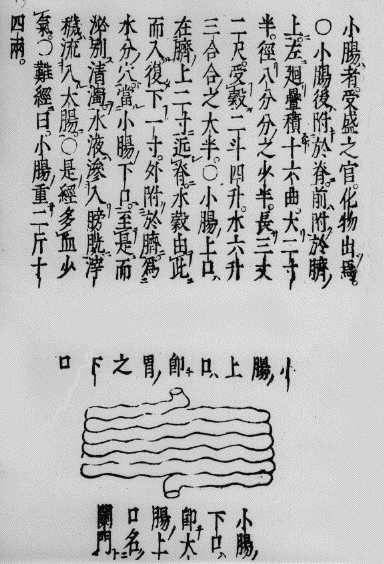 小腸者。受盛之官。化物出焉。
〇小腸後附於脊。前附於臍。
上左廻疊積十六曲。大二寸
半。徑八分分之少半。長三丈
二尺。受穀二斗四升。水六升
三合合之大半。〇小腸上口。
在臍上二寸近脊。水穀由此
而入。復下一寸。外附於臍。爲
水分穴。當小腸下口。至是而
泌別清濁。水液滲入膀胱。滓
穢流入大腸。〇是經多血少
氣。〇難經曰。小腸重二斤十
四兩。
小腸上口即胃之下口
小腸
下口
即大
腸上
口名
闌門